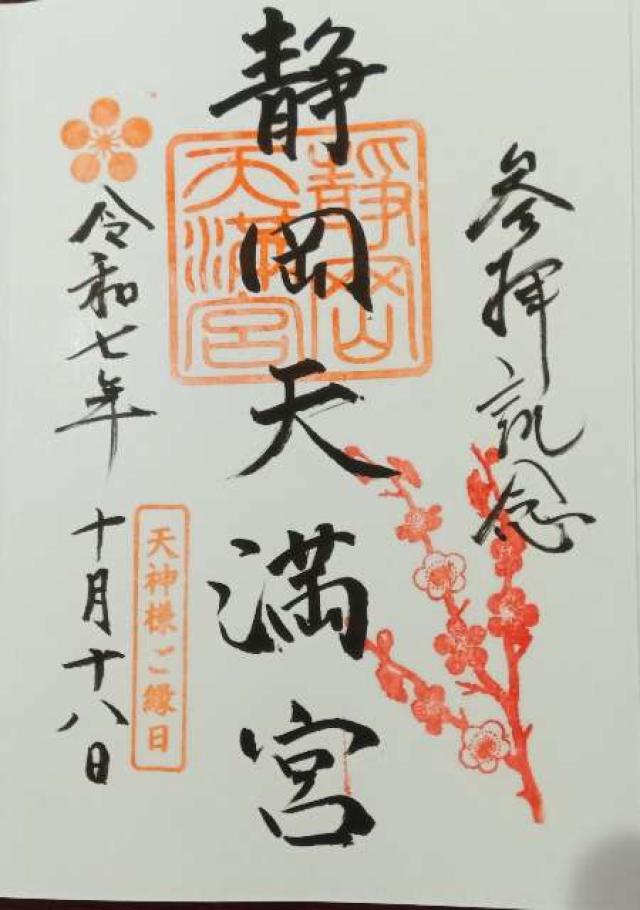 参拝記念
静岡天満宮
靜岡
天満宮
天神様ご縁日
令和七年
十月十八日